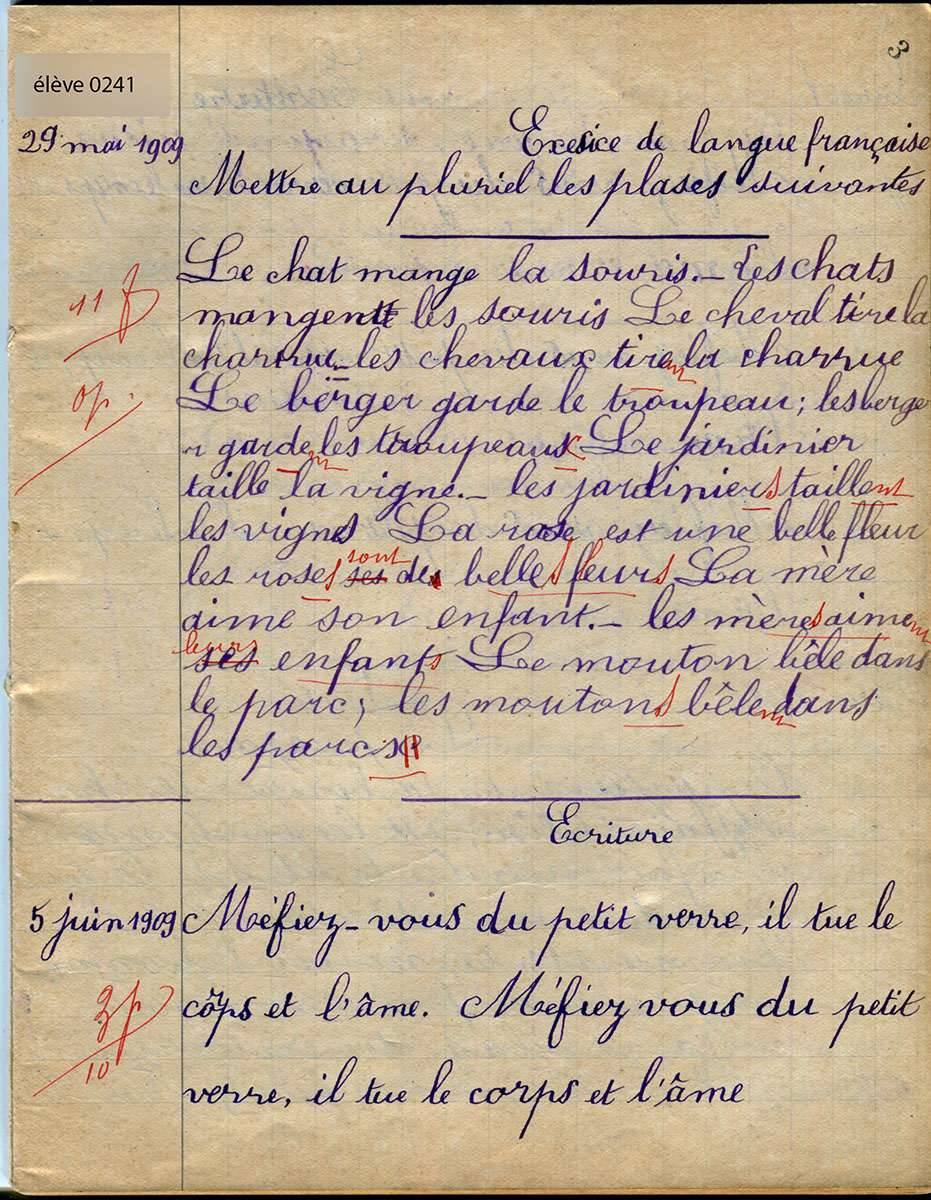 3
élève 0241
29 mai 1909 Exesice de langue française
Mettre au pluriel les plases suivantes
Le chat mange la souris._ Les chats
mangent les souris Le cheval tire la
11 f
charrue_ les chevaux tirent la charrue
0p.
Le berger garde le troupeau; les berge
r gardent les troupeaux Le jardinier
taille la vigne._ les jardiniers taillent
les vignes La rose est une belle fleur
sont
les roses ses des belles fleurs La mère
aime son enfant._ les mères aiment
leurs
ses enfants Le mouton bêle dans
le parc; les moutons bêlent dans
les parcs
Ecriture
5 juin 1909 Méfiez-vous du petit verre, il tue le
3p
10
côrps et l'âme. Méfiez vous du petit
verre, il tue le corps et l'âme